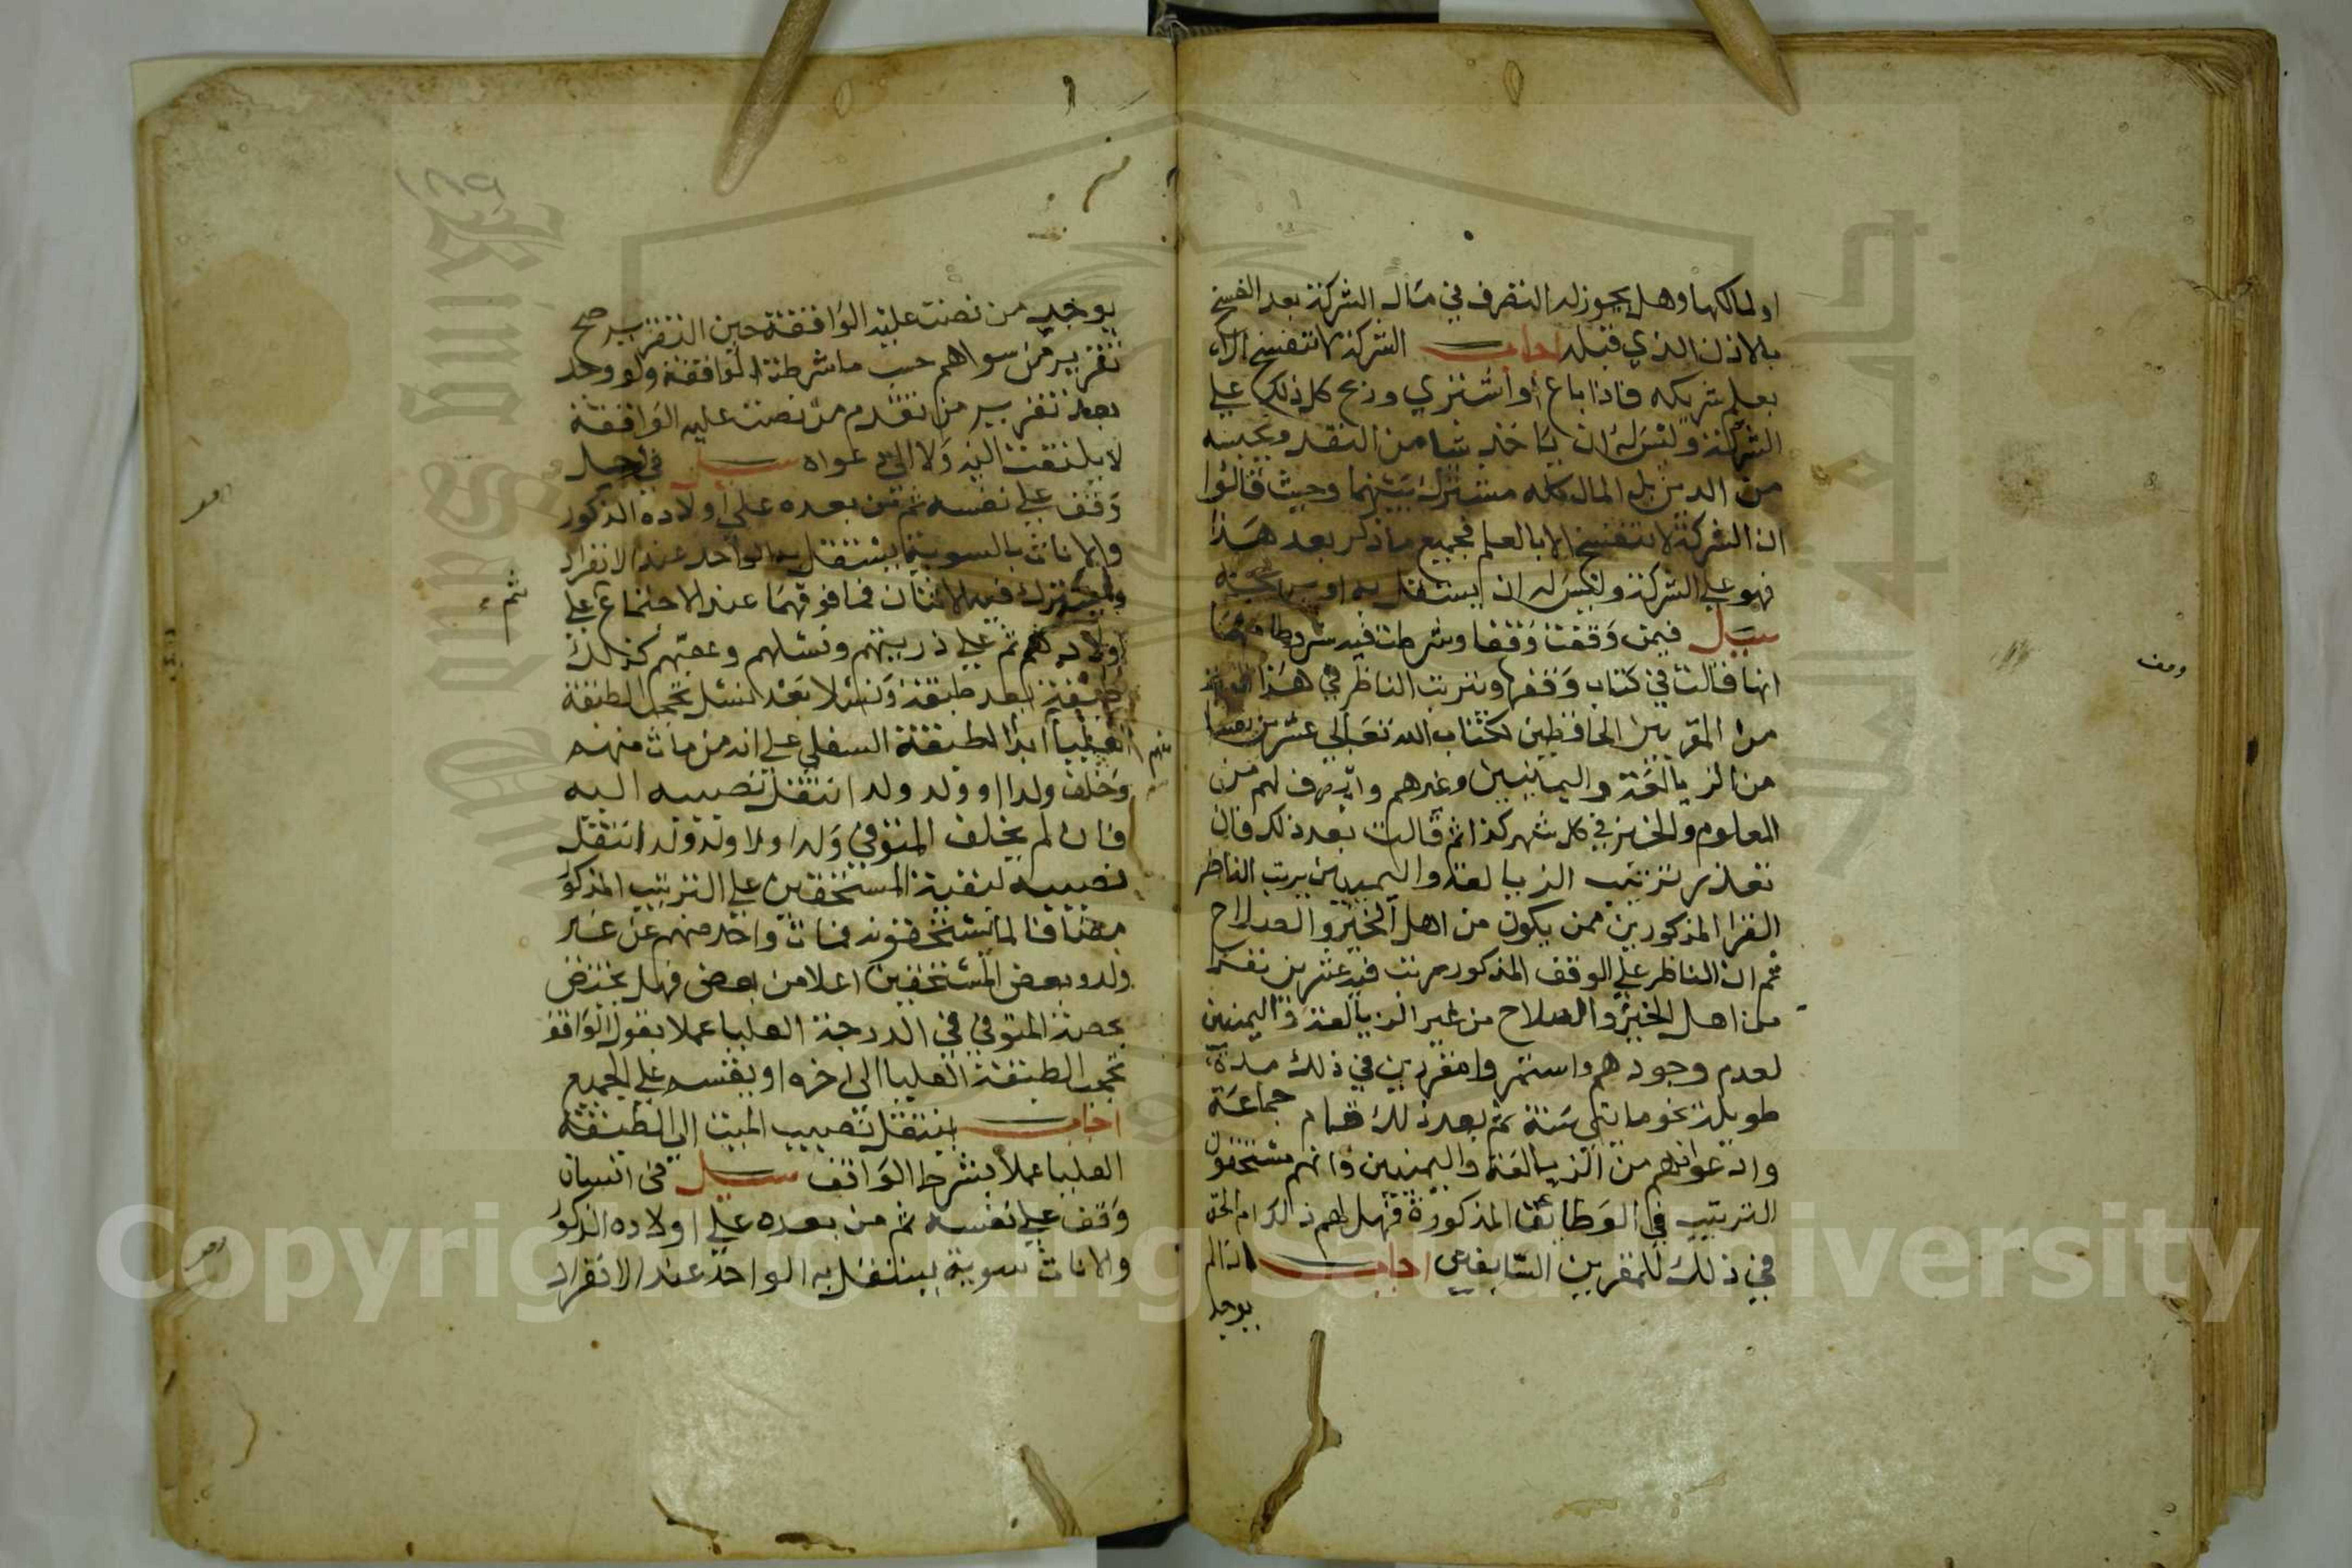 او لمالكها وهل يجوز له التصرف في مال الشركة بعد الفسخ
بالاذن الذي قبله اجاب الشركة لا تنفسخ الا
بعلم شريكه فاذا باع او اشتري وربح كل ذلك علي
الشركة وليس له ان ياخذ شيا من النقد ويحبسه
من الدين بل المال كله مشترك بينهما وحيث قالوا
ان الشركة لا تنفسخ الا بالعلم فجميع ما ذكر بعد هذا
فهو علي الشركة وليس له ان يستقل به او
سيل فيمن وقفت وقفا وشرطت فيه شروطا
انها قالت في كتاب وقفها ويترتب الناظر في هذا
من المقريين الحافظين لكتاب الله تعالي عشرين نفسا
من الزيالعة واليمنيين وغيرهم وان يصرف لهم من
المعلوم والخبز في كل شهر كذا ثم قالت بعد ذلك فان
تعذر ترتيب الزيالعة واليمنيين يرتب الناظر
القرا المذكورين ممن يكون من اهل الخير والصلاح
ثم ان الناظر علي الوقف المذكور رتب فيه عشرين نفسا
من اهل الخير والصلاح من غير الزيالعة واليمنيين
لعدم وجودهم واستمروا مقررين في ذلك مدة
طويلة نحو مايتي سنة ثم بعد ذلك قام جماعة
وادعوا انهم من الزيالعة واليمنيين وانهم مستحقون
الترتيب في الوظائف المذكورة فهل لهم ذلك ام الحق
في ذلك للمقررين السابقين اجاب اذا لم
يوجد
وقف
يوجد من نصت عليه الواقفة حين التقرير صح
تقرير من سواهم حسب ما شرطته الواقفة ولو وجد
بعد تقرير من تقدم من نصت عليه الواقفة
لا يلتفت اليه ولا الي دعواه سيل في رجل
وقف علي نفسه ثم من بعده علي اولاده الذكور
والاناث بالسوية يستقل به الواحد عند الانفراد
ويشترك فيه الاثنان فما فوقهما عند الاجتماع علي
ثم
اولادهم ثم علي ذريتهم ونسلهم وعقبهم كذلك
طبقة بعد طبقة ونسلا بعد نسل تحجب الطبقة
العليا ابدا الطبقة السفلي علي ان من مات منهم
منهم
وخلف ولدا او ولد ولد انتقل نصيبه اليه
فان لم يخلف المتوفي ولدا ولا ولد ولد انتقل
نصيبه لبقية المستحقين علي الترتيب المذكور
مضافا لما يستحقونه فمات واحد منهم عن غير
ولد وبعض المستحقين اعلا من بعض فهل يختص
بحصة المتوفي في الدرجة العليا عملا بقول الواقف
تحجب الطبقة العليا الي اخره او يقسم علي الجميع
اجاب ينتقل نصيب الميت الي الطبقة
العليا عملا بشرط الواقف سيل في انسان
وقف علي نفسه ثم من بعده علي اولاده الذكور
والاناث سوية يستقل به الواحد عند الانفراد
Copyright © King Saud University